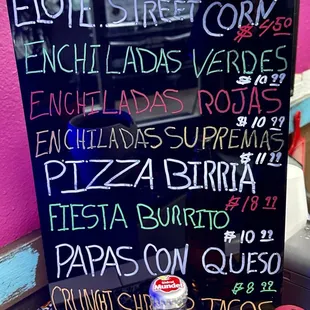 ELOTE STREET CORN
$4.50
ENCHILADAS VERDES
$10.99
ENCHILADAS ROJAS
$10.99
ENCHILADAS SUPREMAS
$11.99
PIZZA BIRRIA
$18.99
FIESTA BURRITO
$10.99
PAPAS CON QUESO
$8.99
CRUNCHY TACOS
Mundet